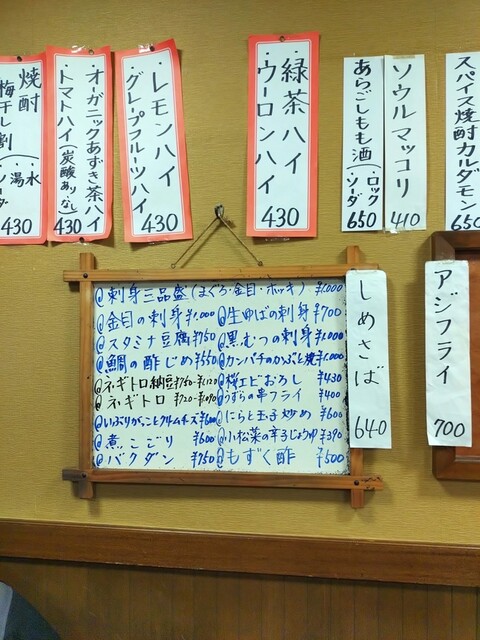 焼酎
梅干し割(湯水ソーダ
430
・オーガニックあずき茶ハイ
トマトハイ(炭酸ありなし)
430
・レモンハイ
グレープフルーツハイ
430
・緑茶ハイ
ウーロンハイ
430
あらごしもも酒(・ロック・ソーダ
650
ソウルマッコリ
410
スパイス焼酎カルダモン
650
@刺身三品盛(まぐろ・金目・ホッキ) ¥1,000
@金目の刺身 ¥1,000
@スタミナ豆腐 ¥750
@鯛の酢じめ ¥550
@ネギトロ納豆 ¥760-¥1,120
@ネギトロ ¥720-¥1,090
@いぶりがっことクリームチーズ ¥600
@煮こごり ¥600
@バクダン ¥750
@生ゆばの刺身 ¥700
@黒むつの刺身 ¥1,000
@カンパチのかぶと焼 ¥1,000
@桜エビおろし ¥430
@うずらの串フライ ¥400
@にらと玉子炒め ¥600
@小松菜の辛子じょうゆ ¥390
@もずく酢 ¥500
しめさば
640
アジフライ
700